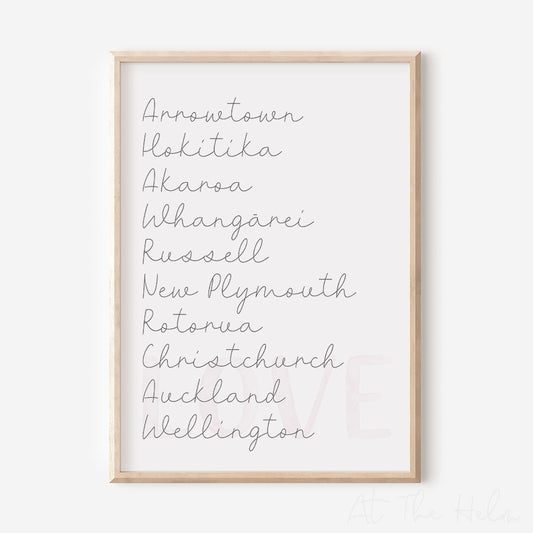 Arrowtown
Hokitika
Akaroa
Whangārei
Russell
New Plymouth
Rotorua
Christchurch
Auckland
Wellington
LOVE
At The Helm